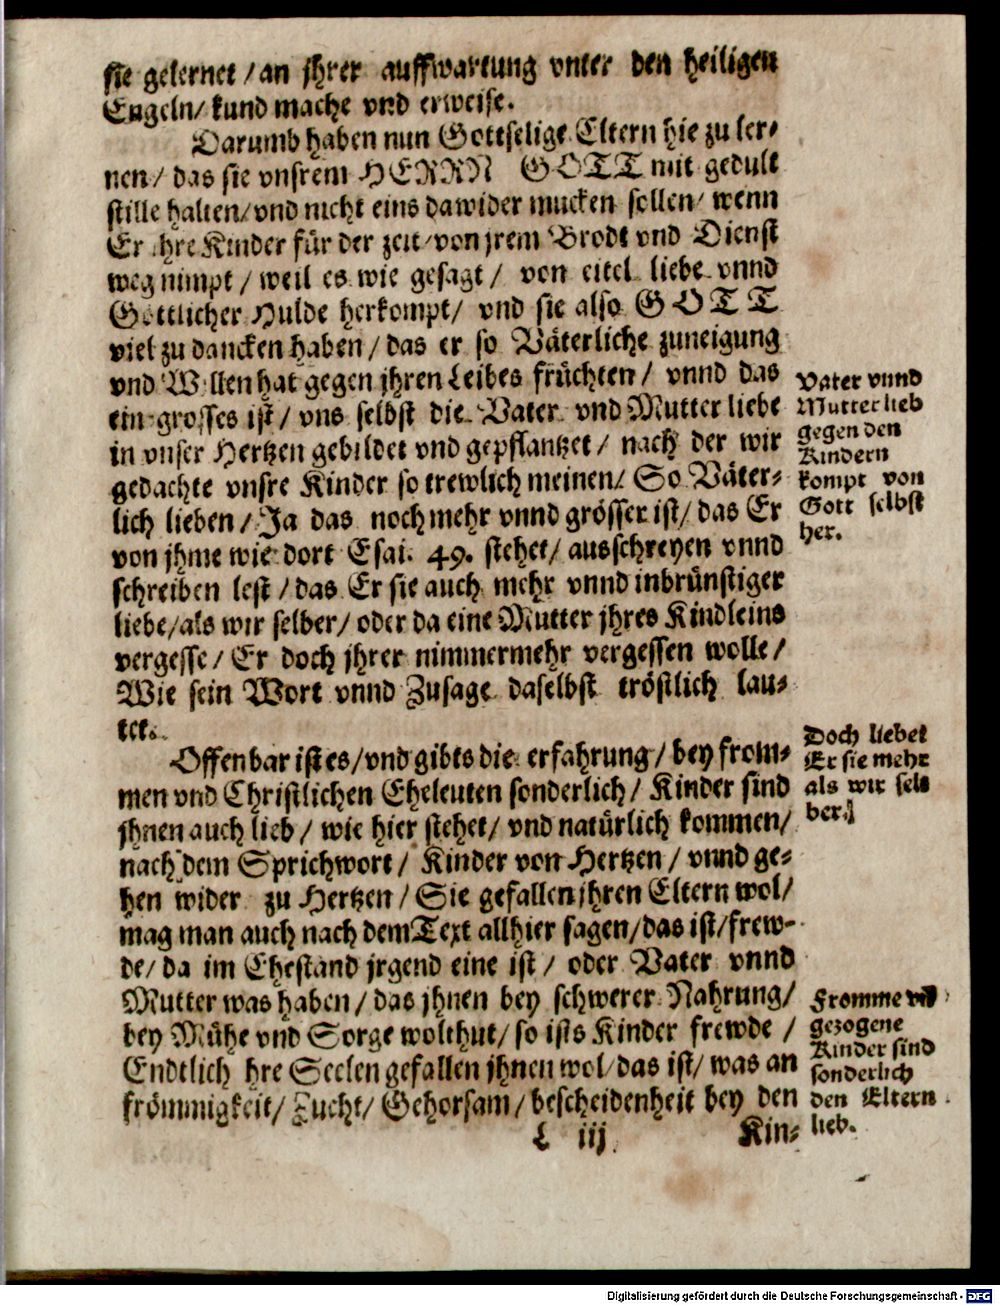 sie gelernet / an jhrer auffwartung vnter den heiligen
Engeln / kund mache vnd erweise.
Darumb haben nun Gottselige Eltern hie zu ler⸗
nen / das sie vnsrem HERRN GOTT mit gedult
stille halten / vnd nicht eins dawider mucken sollen / wenn
Er jhre Kinder für der zeit / von jrem Brodt vnd Dienst
weg nimpt / weil es wie gesagt / von eitel liebe vnnd
Göttlicher Hulde herkompt / vnd sie also GOTT
viel zu dancken haben / das er so Väterliche zuneigung
vnd Willen hat gegen jhren Leibes früchten / vnnd das
ein grosses ist / vns selbst die Vater vnd Mutter liebe
in vnser Hertzen gebildet vnd gepflantzet / nach der wir
gedachte vnsre Kinder so trewlich meinen / So Väter⸗
lich lieben / Ja das noch mehr vnnd grösser ist / das Er
von jhme wie dort Esai. 49. stehet / ausschreyen vnnd
schreiben lest / das Er sie auch mehr vnnd inbrünstiger
liebe / als wir selber / oder da eine Mutter jhres Kindleins
vergesse / Er doch jhrer nimmermehr vergessen wolle /
Wie sein Wort vnnd Zusage daselbst tröstlich lau⸗
tet.
Vater vnnd
Mutter lieb
gegen den
Kindern
kompt von
Gott selbst
her.
Offenbar ist es / vnd gibts die erfahrung / bey from⸗
men vnd Christlichen Eheleuten sonderlich / Kinder sind
jhnen auch lieb / wie hier stehet / vnd natürlich kommen /
nach dem Sprichwort / Kinder von Hertzen / vnnd ge⸗
hen wider zu Hertzen / Sie gefallen jhren Eltern wol /
mag man auch nach dem Text allhier sagen / das ist / frew⸗
de / da im Ehestand jrgend eine ist / oder Vater vnnd
Mutter was haben / das jhnen bey schwerer Nahrung /
bey Mühe vnd Sorge wolthut / so ists Kinder frewde /
Endtlich jhre Seelen gefallen jhnen wol / das ist / was an
frömmigkeit / Zucht / Gehorsam / bescheidenheit bey den
Doch liebet
Er sie mehr
als wir sel⸗
ber.
Fromme vnd
gezogene
Kinder sind
sonderlich
den Eltern
lieb.
L iij Kin⸗
Digitalisierung gefördert durch die Deutsche Forschungsgemeinschaft - DFG